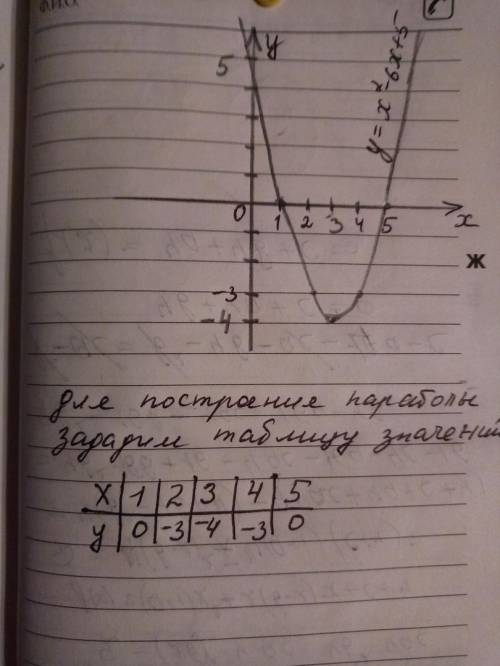 Ф.И.О.
y
5
y = x² - 6x + 5
0
1 2 3 4 5
x
ж
-3
-4
для построения параболы
зададим таблицу значений
x | 1 | 2 | 3 | 4 | 5
y | 0 | -3 | -4 | -3 | 0